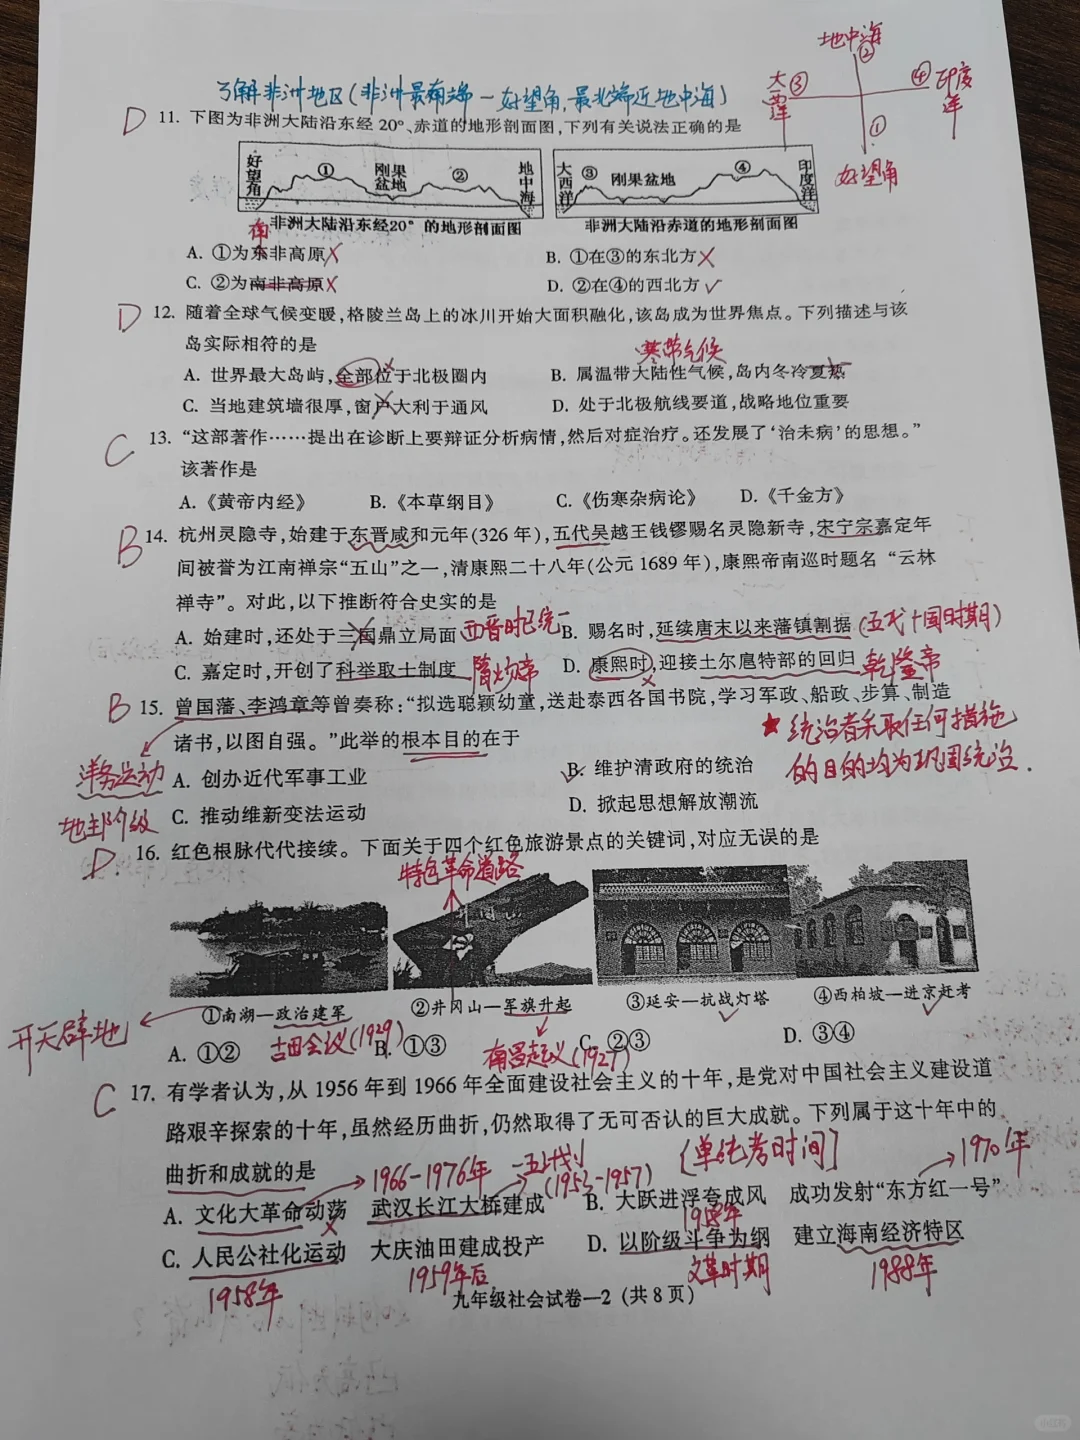 地中海
②
大西洋 ③ ④ 印度洋
①
好望角
了解非洲地区(非洲最南端—好望角,最北端近地中海)
D 11. 下图为非洲大陆沿东经20°、赤道的地形剖面图,下列有关说法正确的是
好望角 ① 刚果盆地 ② 地中海 大西洋 ③ 刚果盆地 ④ 印度洋
非洲大陆沿东经20°的地形剖面图 非洲大陆沿赤道的地形剖面图
南
A. ①为东非高原× B. ①在③的东北方×
C. ②为南非高原× D. ②在④的西北方√
D 12. 随着全球气候变暖,格陵兰岛上的冰川开始大面积融化,该岛成为世界焦点。下列描述与该
岛实际相符的是
寒带气候
A. 世界最大岛屿,全部位于北极圈内 B. 属温带大陆性气候,岛内冬冷夏热
C. 当地建筑墙很厚,窗户大利于通风 D. 处于北极航线要道,战略地位重要
C 13. “这部著作……提出在诊断上要辩证分析病情,然后对症治疗。还发展了‘治未病’的思想。”
该著作是
A.《黄帝内经》 B.《本草纲目》 C.《伤寒杂病论》 D.《千金方》
B 14. 杭州灵隐寺,始建于东晋咸和元年(326年),五代吴越王钱镠赐名灵隐新寺,宋宁宗嘉定年
间被誉为江南禅宗“五山”之一,清康熙二十八年(公元1689年),康熙帝南巡时题名 “云林
禅寺”。对此,以下推断符合史实的是
A. 始建时,还处于三国鼎立局面 西晋时已统一 B. 赐名时,延续唐末以来藩镇割据 (五代十国时期)
C. 嘉定时,开创了科举取士制度 隋炀帝 D. 康熙时,迎接土尔扈特部的回归 乾隆帝
B 15. 曾国藩、李鸿章等曾奏称:“拟选聪颖幼童,送赴泰西各国书院,学习军政、船政、步算、制造
诸书,以图自强。”此举的根本目的在于
★统治者采取任何措施
的目的均为巩固统治.
洋务运动
A. 创办近代军事工业 B. 维护清政府的统治
地主阶级
C. 推动维新变法运动 D. 掀起思想解放潮流
D. 16. 红色根脉代代接续。下面关于四个红色旅游景点的关键词,对应无误的是
特色革命道路
①南湖—政治建军 ②井冈山—军旗升起 ③延安—抗战灯塔 ④西柏坡—进京赶考
开天辟地
A. ①② B. ①③ C. ②③ D. ③④
古田会议(1929) 南昌起义(1927)
C 17. 有学者认为,从1956年到1966年全面建设社会主义的十年,是党对中国社会主义建设道
路艰辛探索的十年,虽然经历曲折,仍然取得了无可否认的巨大成就。下列属于这十年中的
曲折和成就的是
[单纯考时间]
1966-1976年 一五计划(1953-1957) 1970年
A. 文化大革命动荡 武汉长江大桥建成 B. 大跃进浮夸成风 成功发射“东方红一号”
1958年
C. 人民公社化运动 大庆油田建成投产 D. 以阶级斗争为纲 建立海南经济特区
1958年 1959年后 文革时期 1988年
九年级社会试卷—2 (共8页)